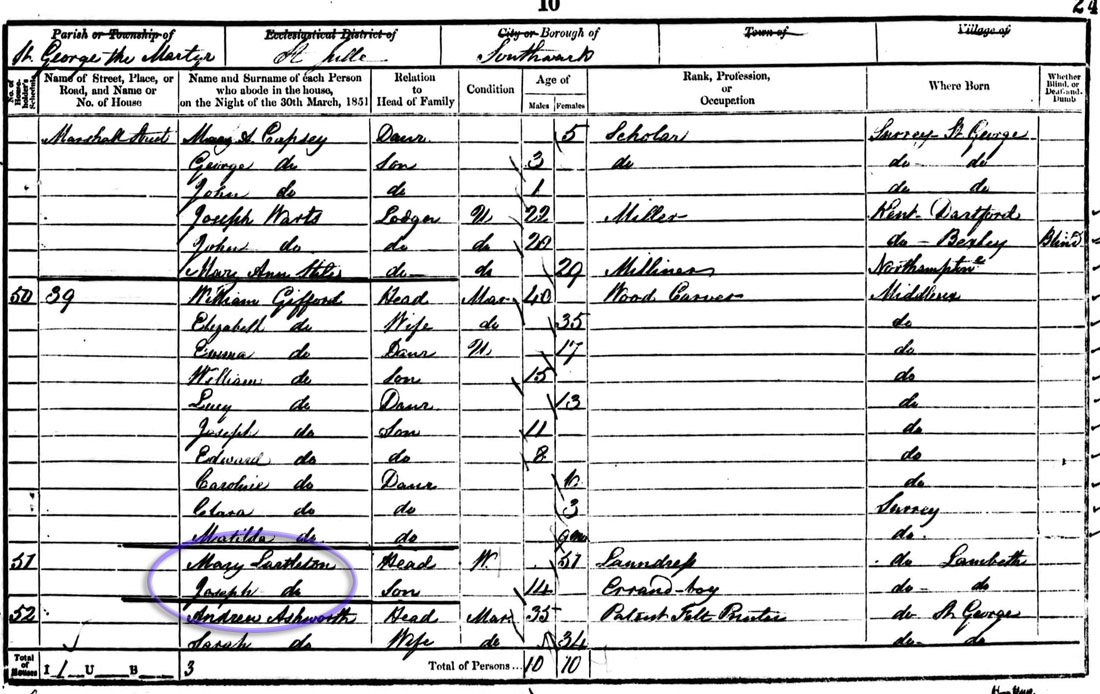 10
24
Parish or Township of Ecclesiastical District of City or Borough of Town of Village of
St. George the Martyr St Southwark
No. of House-holder's Schedule Name of Street, Place, or Road, and Name or No. of House Name and Surname of each Person who abode in the house, on the Night of the 30th March, 1851 Relation to Head of Family Condition Age of Males Females Rank, Profession, or Occupation Where Born Whether Blind, or Deaf and Dumb
Marshall Street Mary A. Capsey Daur 5 Scholar Surrey St George
George do Son 3 do do do
John do do 1 do do
Joseph Warts Lodger U 22 Miller Kent Dartford
John do do do 20 do Bexley Blind
Mary Ann do do 29 Milliner Northampton
50 39 William Gifford Head Mar 40 Wood Carver Middlesex
Elizabeth do Wife do 35 do
Emma do Daur U 17 do
William do Son 15 do
Lucy do Daur 13 do
Joseph do Son 11 do
Edward do do 8 do
Caroline do Daur do
Clara do do 3 Surrey
Matilda do do 9 mo do
51 Mary Head W 51 Laundress do Lambeth
Joseph do Son 14 Errand-boy do do
52 Andrew Ashworth Head Mar 35 Patent Felt Printer do St Georges
Sarah do Wife do 34 do do
Total of Houses I 1 U B 3 Total of Persons... 10 10